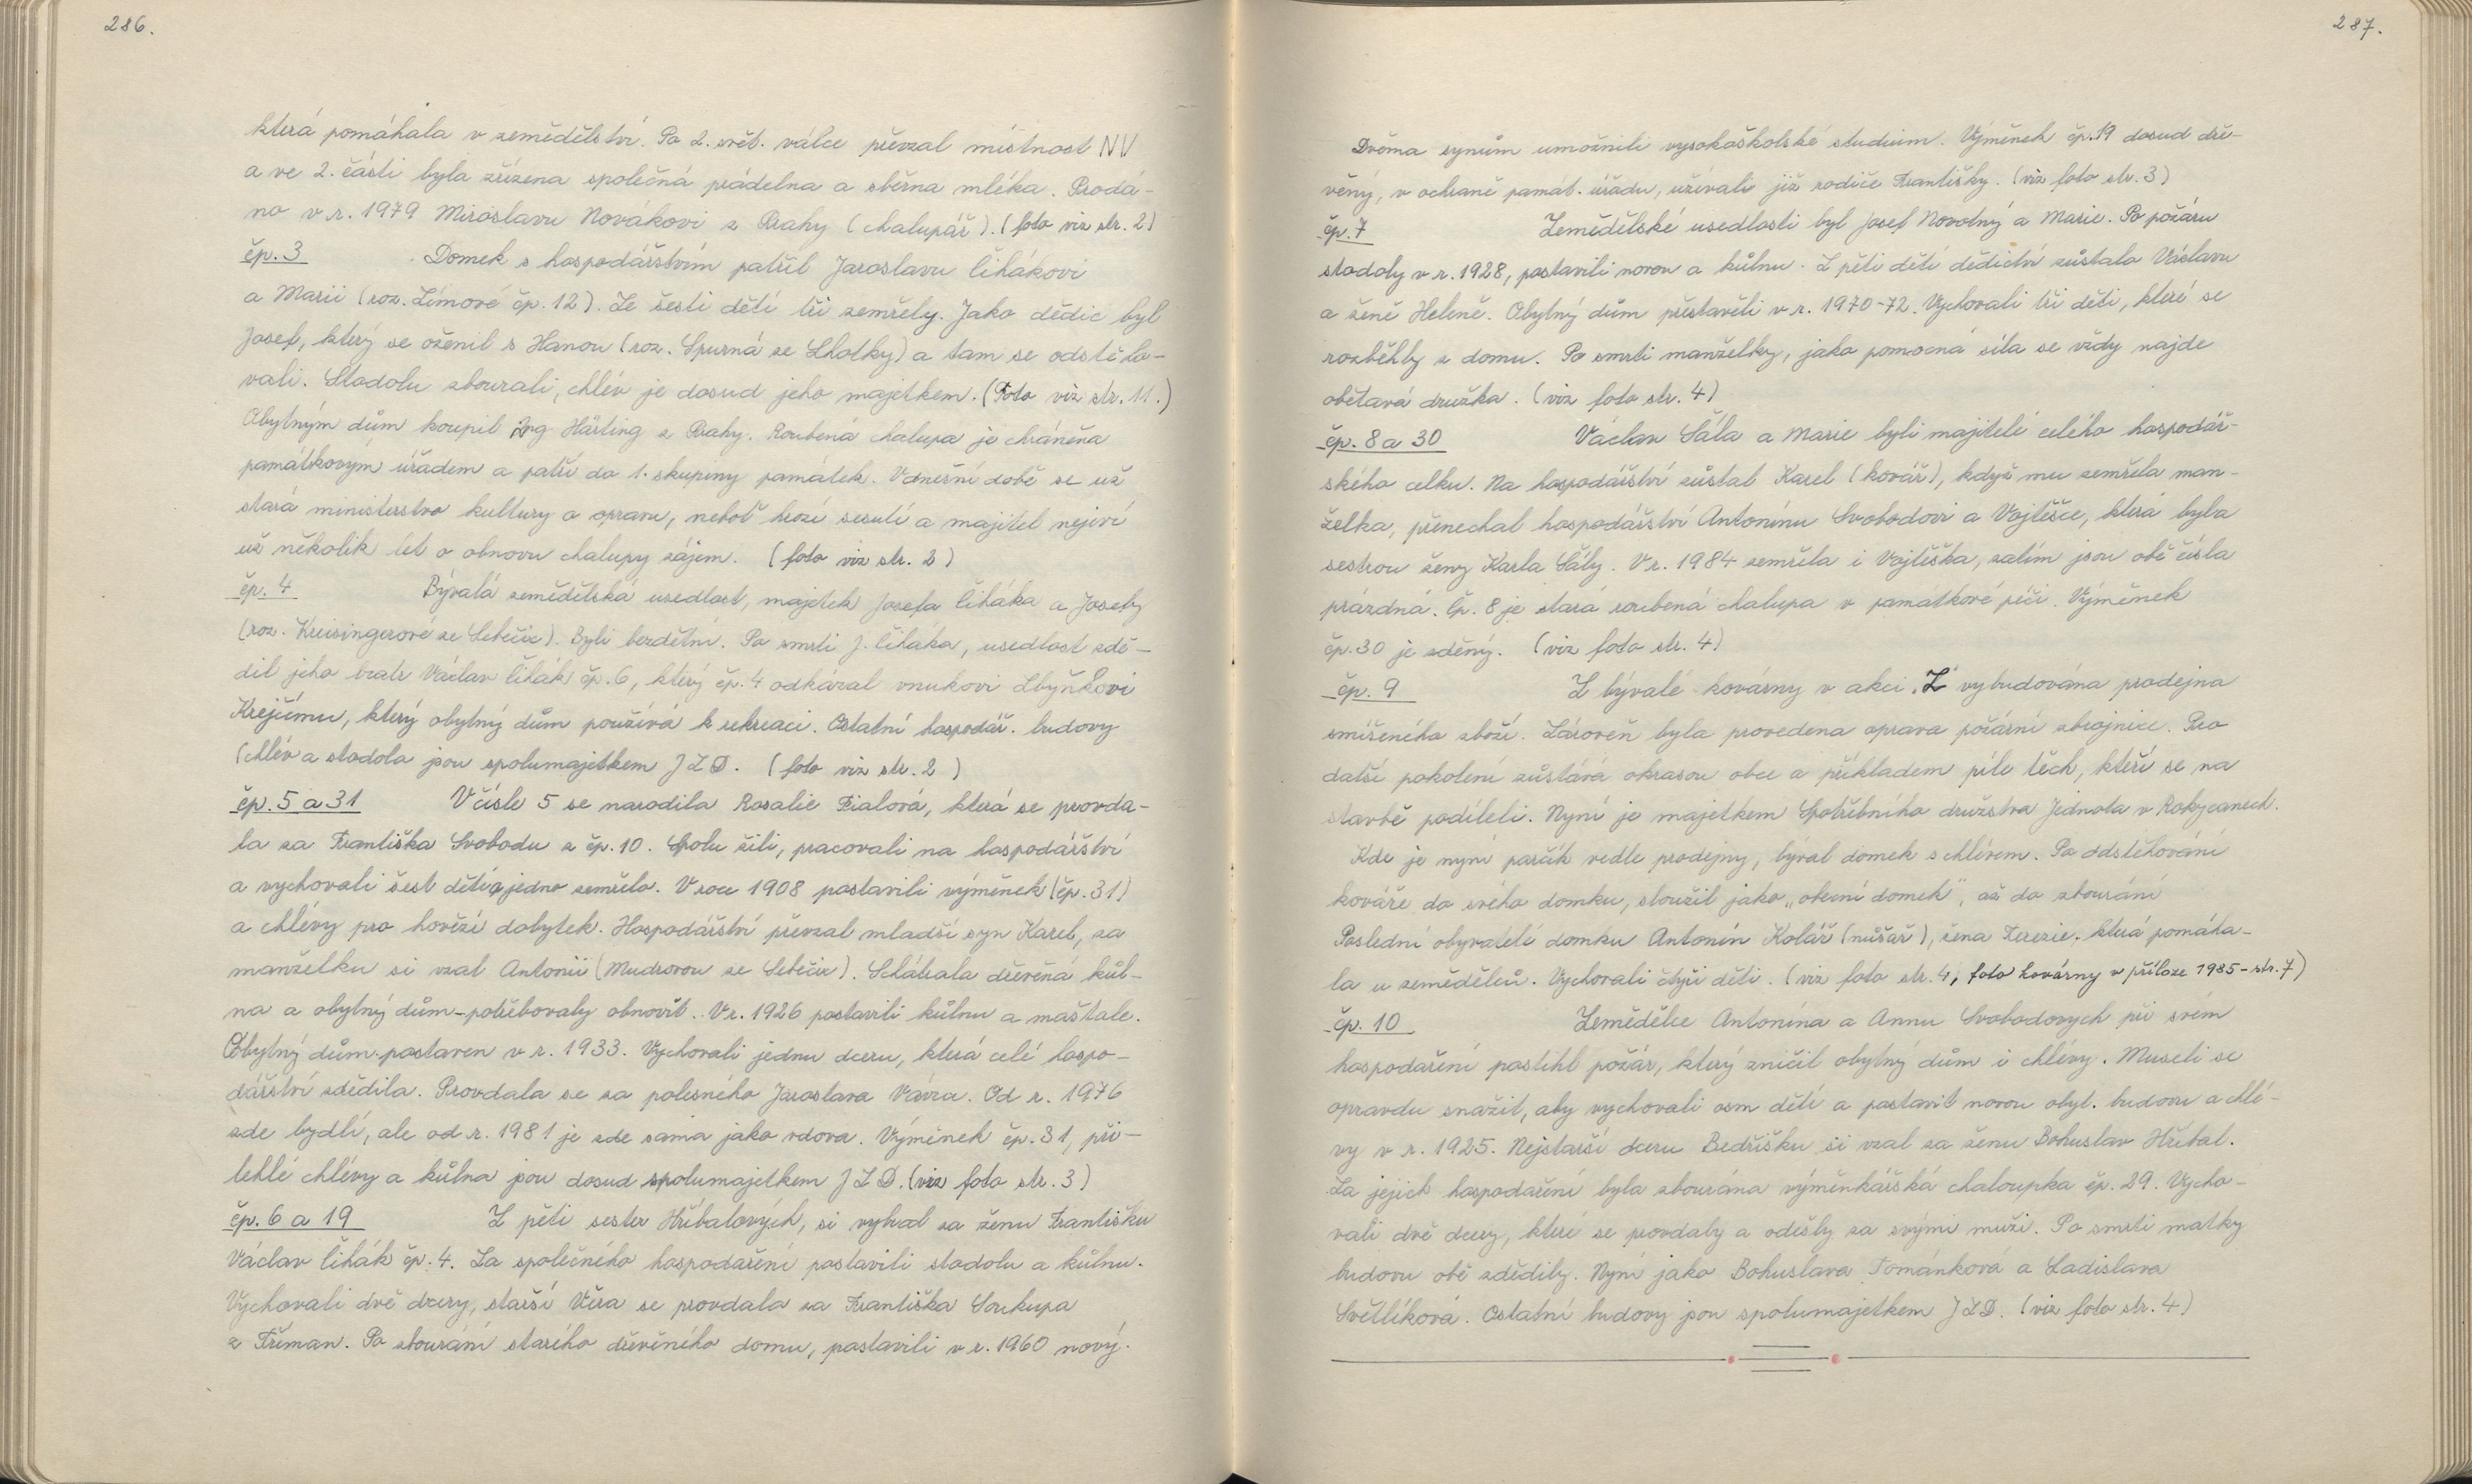 286.
která pomáhala v zemědělství. Po 2. svět. válce převzal místnost NV
a ve 2. části byla zřízena společná prádelna a sběrna mléka. Prodá-
no v r. 1979 Miroslavu Novákovi z Prahy (chalupář). (foto viz str. 2)
čp. 3 Domek s hospodářstvím patřil Jaroslavu Čihákovi
a Marii (roz. Zímové čp. 12). Ze šesti dětí tři zemřely. Jako dědic byl
Josef, který se oženil s Hanou (roz. Spurná ze Lhotky) a tam se odstěho-
vali. Stodolu zbourali, chlév je dosud jeho majetkem. (Foto viz str. 11.)
Obytným dům koupil ing Härting z Prahy. Roubená chalupa je chráněna
památkovým úřadem a patří do 1. skupiny památek. V dnešní době se už
stará ministerstvo kultury o opravu, neboť hrozí sesutí a majitel nejeví
už několik let o obnovu chalupy zájem. (foto viz str. 2)
čp. 4 Bývalá zemědělská usedlost, majetek Josefa Čiháka a Josefy
(roz. Kreisingerové ze Sebečic). Byli bezdětní. Po smrti J. Čiháka, usedlost zdě-
dil jeho bratr Václav Čihák čp. 6, který čp. 4 odkázal vnukovi Zbyňkovi
Krejčímu, který obytný dům používá k rekreaci. Ostatní hospodář. budovy
(chlév a stodola jsou spolumajetkem JZD. (foto viz str. 2)
čp. 5 a 31 V čísle 5 se narodila Rosalie Fialová, která se provda-
la za Františka Svobodu z čp. 10. Spolu žili, pracovali na hospodářství
a vychovali šest dětí, jedno zemřelo. V roce 1908 postavili výměnek (čp. 31)
a chlévy pro hovězí dobytek. Hospodářství převzal mladší syn Karel, za
manželku si vzal Antonii (Mudrovou ze Sebečic). Schátrala dřevěná kůl-
na a obytný dům - potřebovaly obnovit. V r. 1926 postavili kůlnu a maštale.
Obytný dům postaven v r. 1933. Vychovali jednu dceru, která celé hospo-
dářství zdědila. Provdala se za polesného Jaroslava Vávru. Od r. 1976
zde bydlí, ale od r. 1981 je zde sama jako vdova. Výměnek čp. 31, při-
lehlé chlévy a kůlna jsou dosud spolumajetkem JZD. (viz foto str. 3)
čp. 6 a 19 Z pěti sester Hříbalových, si vybral za ženu Františku
Václav Čihák čp. 4. Za společného hospodaření postavili stodolu a kůlnu.
Vychovali dvě dcery, starší Věra se provdala za Františka Soukupa
z Těman. Po zbourání starého dřevěného domu, postavili v r. 1960 nový.
287.
Dvěma synům umožnili vysokoškolské studium. Výměnek čp. 19 dosud dře-
věný, v ochraně památ. úřadu, užívali již rodiče Františky. (viz foto str. 3)
čp. 7 Zemědělské usedlosti byl Josef Novotný a Marie. Po požáru
stodoly v r. 1928, postavili novou a kůlnu. Z pěti dětí dědictví zůstalo Václavu
a ženě Heleně. Obytný dům přestavěli v r. 1970-72. Vychovali tři děti, které se
rozběhly z domu. Po smrti manželky, jako pomocná síla se vždy najde
obětavá družka. (viz foto str. 4)
čp. 8 a 30 Václav Sála a Marie byli majitelé celého hospodář-
ského celku. Na hospodářství zůstal Karel (kovář), když mu zemřela man-
želka, přenechal hospodářství Antonínu Svobodovi a Vojtěšce, která byla
sestrou ženy Karla Sály. V r. 1984 zemřela i Vojtěška, zatím jsou obě čísla
prázdná. Čp. 8 je stará roubená chalupa v památkové péči. Výměnek
čp. 30 je zděný. (viz foto str. 4)
čp. 9 Z bývalé kovárny v akci „Z" vybudována prodejna
smíšeného zboží. Zároveň byla provedena oprava požární zbrojnice. Pro
další pokolení zůstává okrasou obce a příkladem píle těch, kteří se na
stavbě podíleli. Nyní je majetkem Spotřebního družstva Jednota v Rokycanech.
Kde je nyní parčík vedle prodejny, býval domek s chlévem. Po odstěhování
kováře do svého domku, sloužil jako „obecní domek", až do zbourání
Poslední obyvatelé domku Antonín Kolář (nůšař), žena Terezie, která pomáha-
la u zemědělců. Vychovali čtyři děti. (viz foto str. 4, foto kovárny v příloze 1985 - str. 7)
čp. 10 Zemědělce Antonína a Annu Svobodových při svém
hospodaření postihl požár, který zničil obytný dům i chlévy. Museli se
opravdu snažit, aby vychovali osm dětí a postavit novou obyt. budovu a chlé-
vy v r. 1925. Nejstarší dceru Bedřišku si vzal za ženu Bohuslav Hříbal.
Za jejich hospodaření byla zbourána výměnkářská chaloupka čp. 29. Vycho-
vali dvě dcery, které se provdaly a odešly za svými muži. Po smrti matky
budovu obě zdědily. Nyní jako Bohuslava Tománková a Ladislava
Světlíková. Ostatní budovy jsou spolumajetkem JZD. (viz foto str. 4)